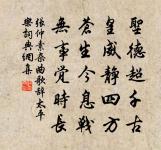 聖德超千古
皇威靜四方
蒼生今息戰
無事覺時長
張仲素雜曲歌辭太平
樂詞典網集